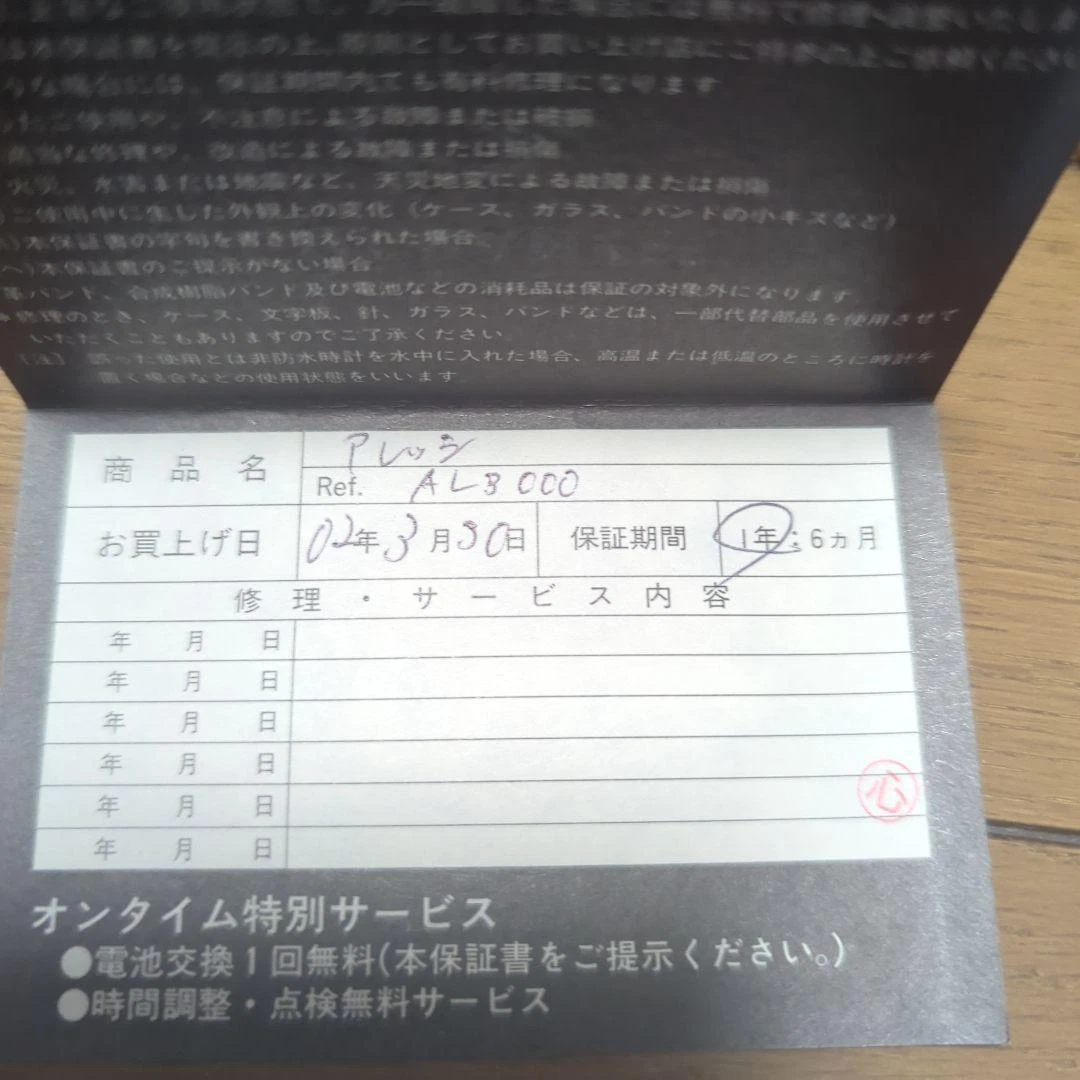 保証期間内でも有料修理になります
不注意による故障または破損
改造による故障または損傷
火災、水害または地震など、天災地変による故障または損傷
ご使用中に生じた外観上の変化(ケース、ガラス、バンドの小キズなど)
本保証書の字句を書き換えられた場合
(ヘ)本保証書のご提示がない場合
革バンド、合成樹脂バンド及び電池などの消耗品は保証の対象外になります。
修理のとき、ケース、文字板、針、ガラス、バンドなどは、一部代替部品を使用させて
いただくこともありますのでご了承ください。
(注) 誤った使用とは非防水時計を水中に入れた場合、高温または低温のところに時計を
置く場合などの使用状態をいいます。
商品名 アレッシ
Ref. AL3000
お買上げ日 02年3月30日 保証期間 1年:6ヵ月
修理・サービス内容
年 月 日
年 月 日
年 月 日
年 月 日
年 月 日
心
年 月 日
オンタイム特別サービス
●電池交換1回無料(本保証書をご提示ください。)
●時間調整・点検無料サービス